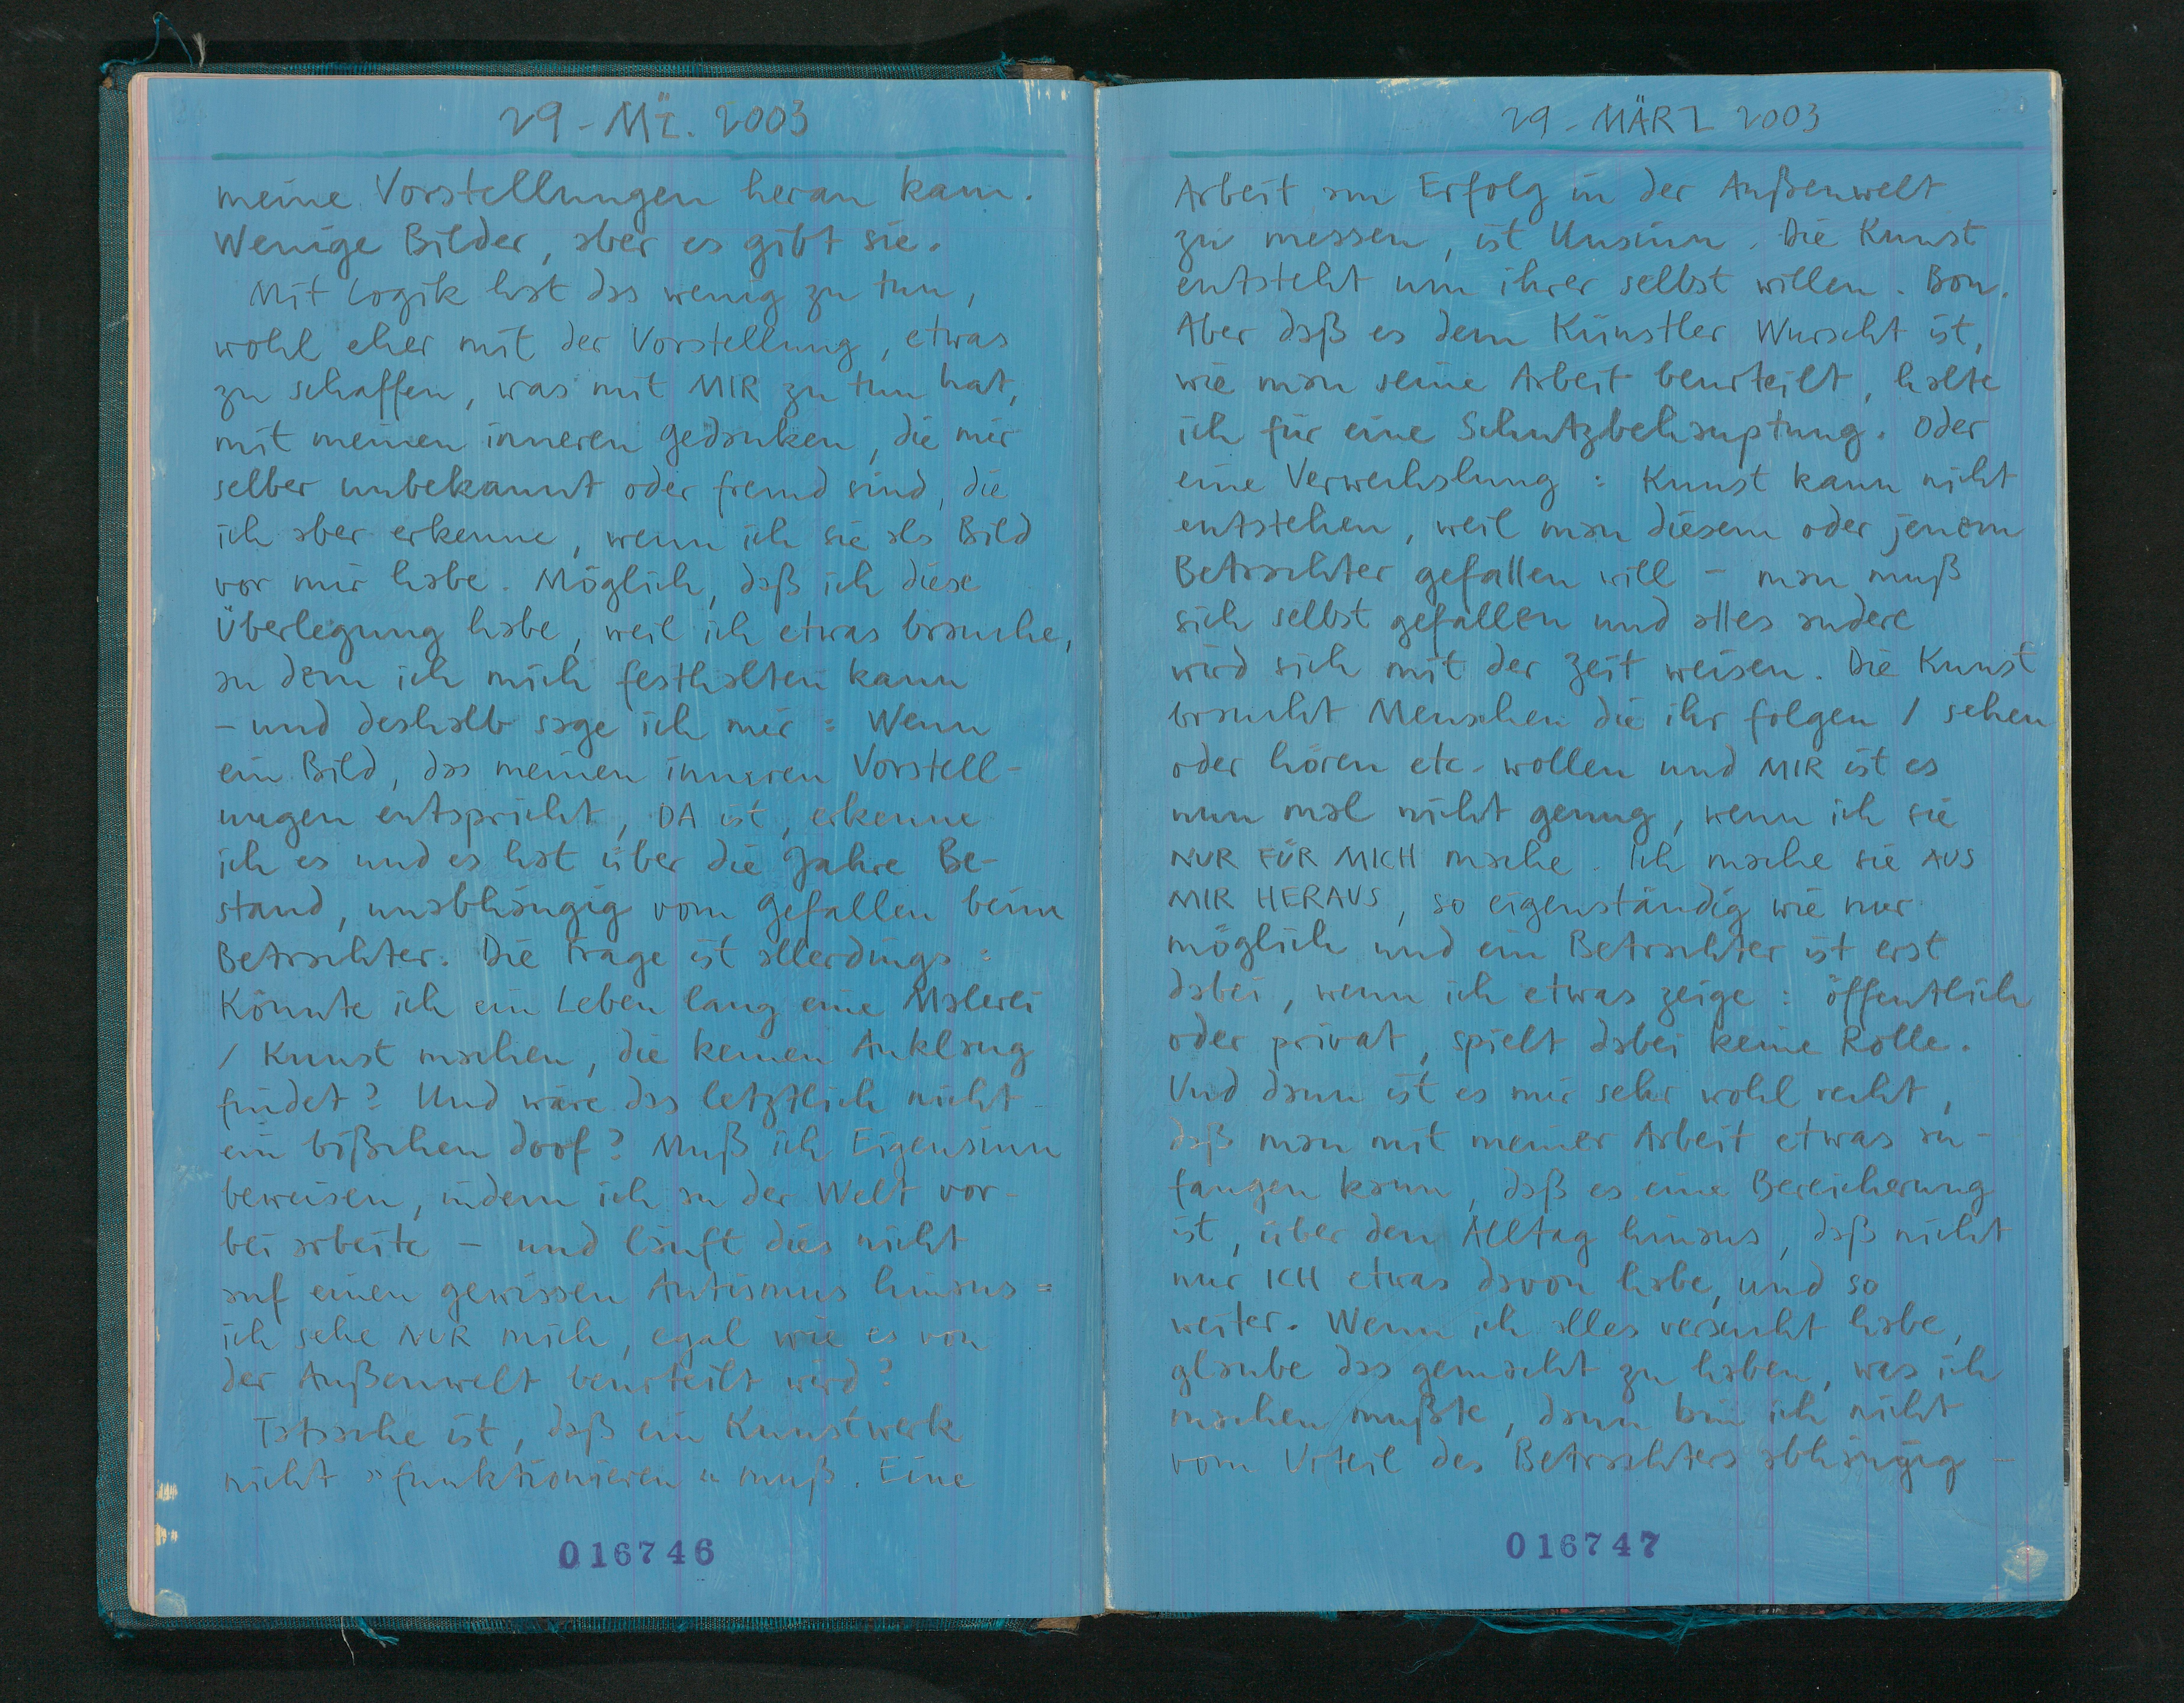 29-Mz. 2003
meine Vorstellungen heran kam.
Wenige Bilder, aber es gibt sie.
Mit Logik hat das wenig zu tun,
wohl eher mit der Vorstellung, etwas
zu schaffen, was mit MIR zu tun hat,
mit meinen inneren Gedanken, die mir
selber unbekannt oder fremd sind, die
ich aber erkenne, wenn ich sie als Bild
vor mir habe. Möglich, daß ich diese
Überlegung habe, weil ich etwas brauche,
an dem ich mich festhalten kann
– und deshalb sage ich mir: Wenn
ein Bild, das meinen inneren Vorstell-
ungen entspricht, DA ist, erkenne
ich es und es hat über die Jahre Be-
stand, unabhängig vom Gefallen beim
Betrachter. Die Frage ist allerdings:
Könnte ich ein Leben lang eine Malerei
/ Kunst machen, die keinen Anklang
findet? Und wäre das letztlich nicht
ein bißchen doof? Muß ich Eigensinn
beweisen, indem ich an der Welt vor-
bei arbeite – und läuft dies nicht
auf einen gewissen Autismus hinaus =
ich sehe NUR mich, egal wie es von
der Außenwelt beurteilt wird?
Tatsache ist, daß ein Kunstwerk
nicht »funktionieren« muß. Eine
016746
29-MÄRZ 2003
Arbeit am Erfolg in der Außenwelt
zu messen, ist Unsinn. Die Kunst
entsteht um ihrer selbst willen. Bon.
Aber daß es dem Künstler Wurscht ist,
wie man seine Arbeit beurteilt, halte
ich für eine Schutzbehauptung. Oder
eine Verwechslung: Kunst kann nicht
entstehen, weil man diesem oder jenem
Betrachter gefallen will – man muß
sich selbst gefallen und alles andere
wird sich mit der Zeit weisen. Die Kunst
braucht Menschen die ihr folgen / sehen
oder hören etc. wollen und MIR ist es
nun mal nicht genug, wenn ich sie
NUR FÜR MICH mache. Ich mache sie AUS
MIR HERAUS, so eigenständig wie nur
möglich und ein Betrachter ist erst
dabei, wenn ich etwas zeige: öffentlich
oder privat, spielt dabei keine Rolle.
Und dann ist es mir sehr wohl recht,
daß man mit meiner Arbeit etwas an-
fangen kann, daß es eine Bereicherung
ist, über den Alltag hinaus, daß nicht
nur ICH etwas davon habe, und so
weiter. Wenn ich alles versucht habe,
glaube das gemacht zu haben, was ich
machen mußte, dann bin ich nicht
vom Urteil des Betrachters abhängig –
016747